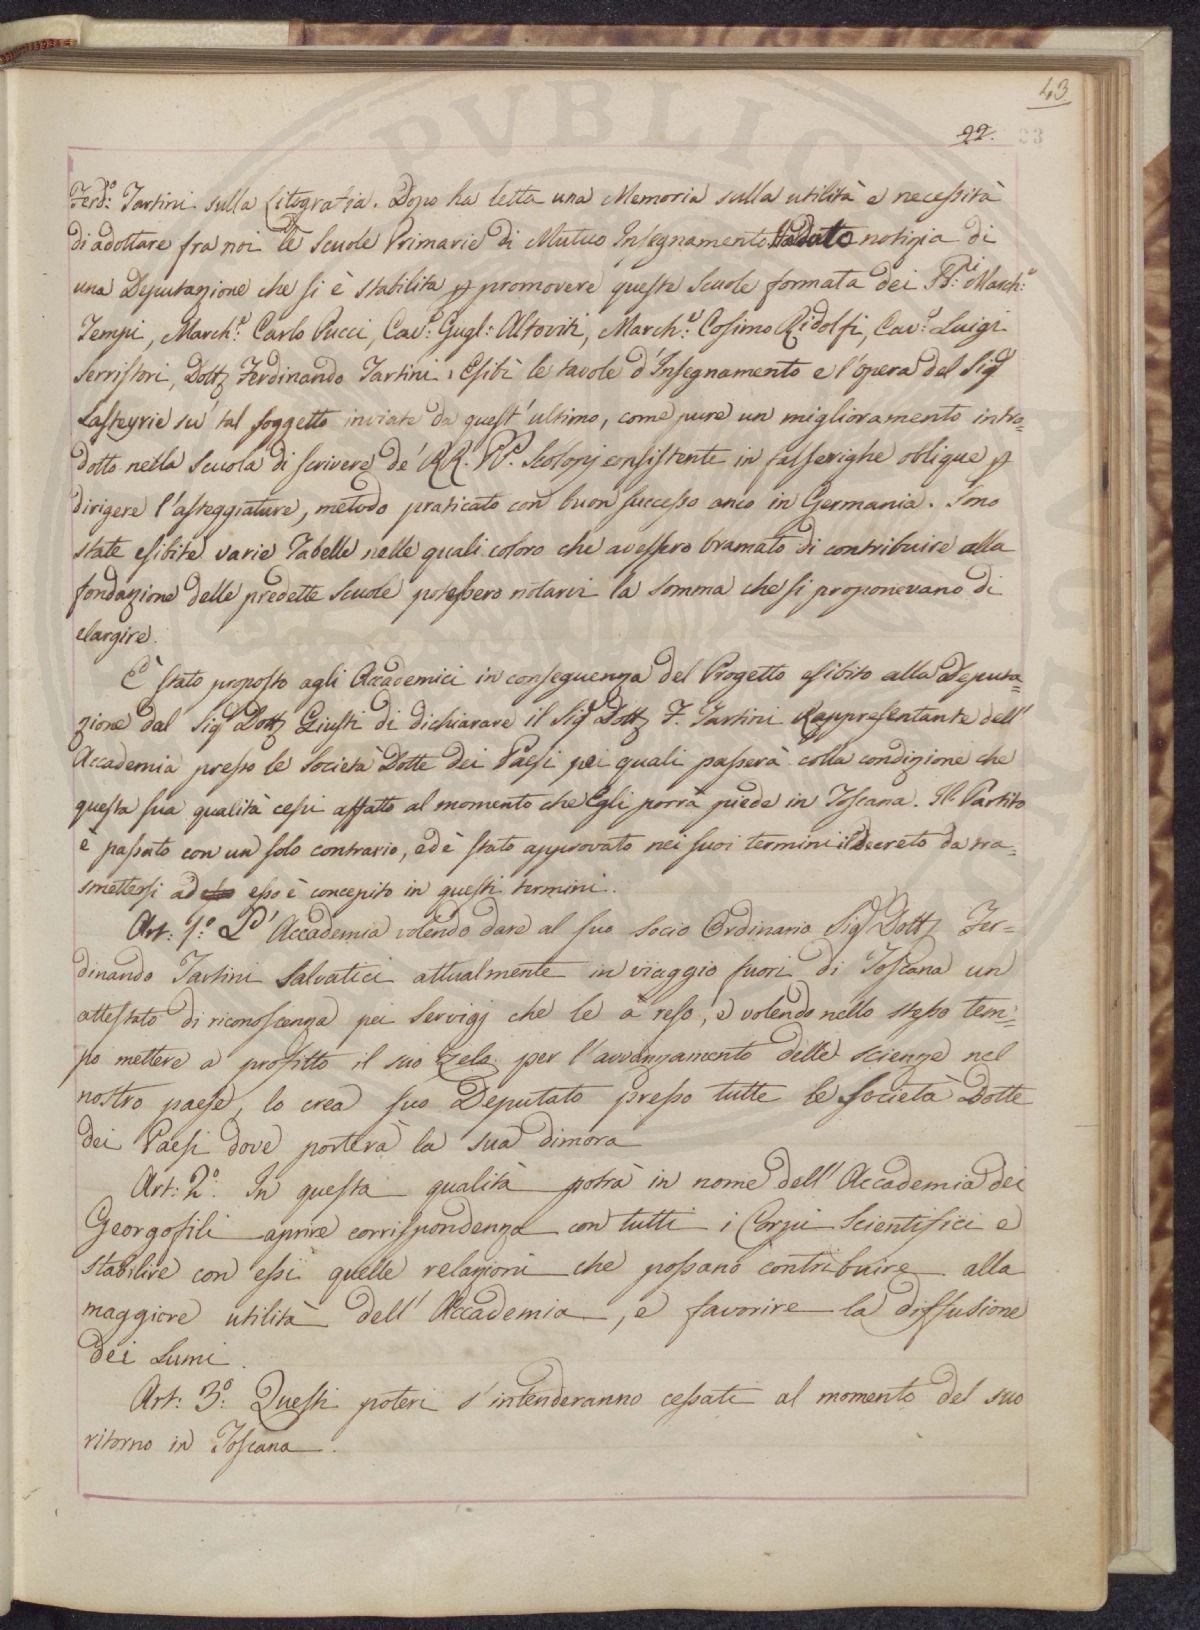 43
22.
33
PVBLIC
Ferd:° Tartini sulla Litografia. Dopo ha letta una Memoria sulla utilità e necessità
di adottare fra noi le Scuole Primarie di Mutuo Insegnamento ha dato notizia di
una Deputazione che si è stabilita p promovere queste Scuole formata dei March:e
Tempi, March:e Carlo Pucci, Cav:e Gugl: Altoviti, March:e Cosimo Ridolfi, Cav:e Luigi
Serristori, Dott Ferdinando Tartini. Esibì le tavole d'Insegnamento e l'opera del Sig
Lasteyrie su tal soggetto inviate da quest'ultimo, come pure un miglioramento intro=
dotto nella Scuola di scrivere de' RR. PP. Scolopj consistente in falserighe oblique p
dirigere l'asteggiature, metodo praticato con buon successo anco in Germania. Sono
state esibite varie Tabelle nelle quali coloro che avessero bramato di contribuire alla
fondazione delle predette Scuole potessero notarvi la somma che si proponevano di
elargire.
È stato proposto agli Accademici in conseguenza del Progetto esibito alla Deputa=
zione dal Sig Dott Giusti di dichiarare il Sig Dott F. Tartini Rappresentante dell'
Accademia presso le Società Dotte dei Paesi pei quali passerà colla condizione che
questa sua qualità cessi affatto al momento che Egli porrà piede in Toscana. Il Partito
è passato con un solo contrario, ed è stato approvato nei suoi termini il Decreto da tra=
smettersi ad esso è concepito in questi termini.
Art: 1:° L' Accademia volendo dare al suo Socio Ordinario Sig Dott Fer=
dinando Tartini Salvatici attualmente in viaggio fuori di Toscana un
attestato di riconoscenza pei Servigj che le à reso, e volendo nello stesso tem=
po mettere a profitto il suo zelo per l'avvanzamento delle scienze nel
nostro paese, lo crea suo Deputato presso tutte le Società Dotte
dei Paesi dove porterà la sua dimora
Art: 2°. In questa qualità potrà in nome dell'Accademia dei
Georgofili aprire corrispondenza con tutti i Corpi Scientifici e
stabilire con essi quelle relazioni che possano contribuire alla
maggiore utilità dell'Accademia, e favorire la diffusione
dei Lumi.
Art: 3:° Questi poteri s'intenderanno cessati al momento del suo
ritorno in Toscana.